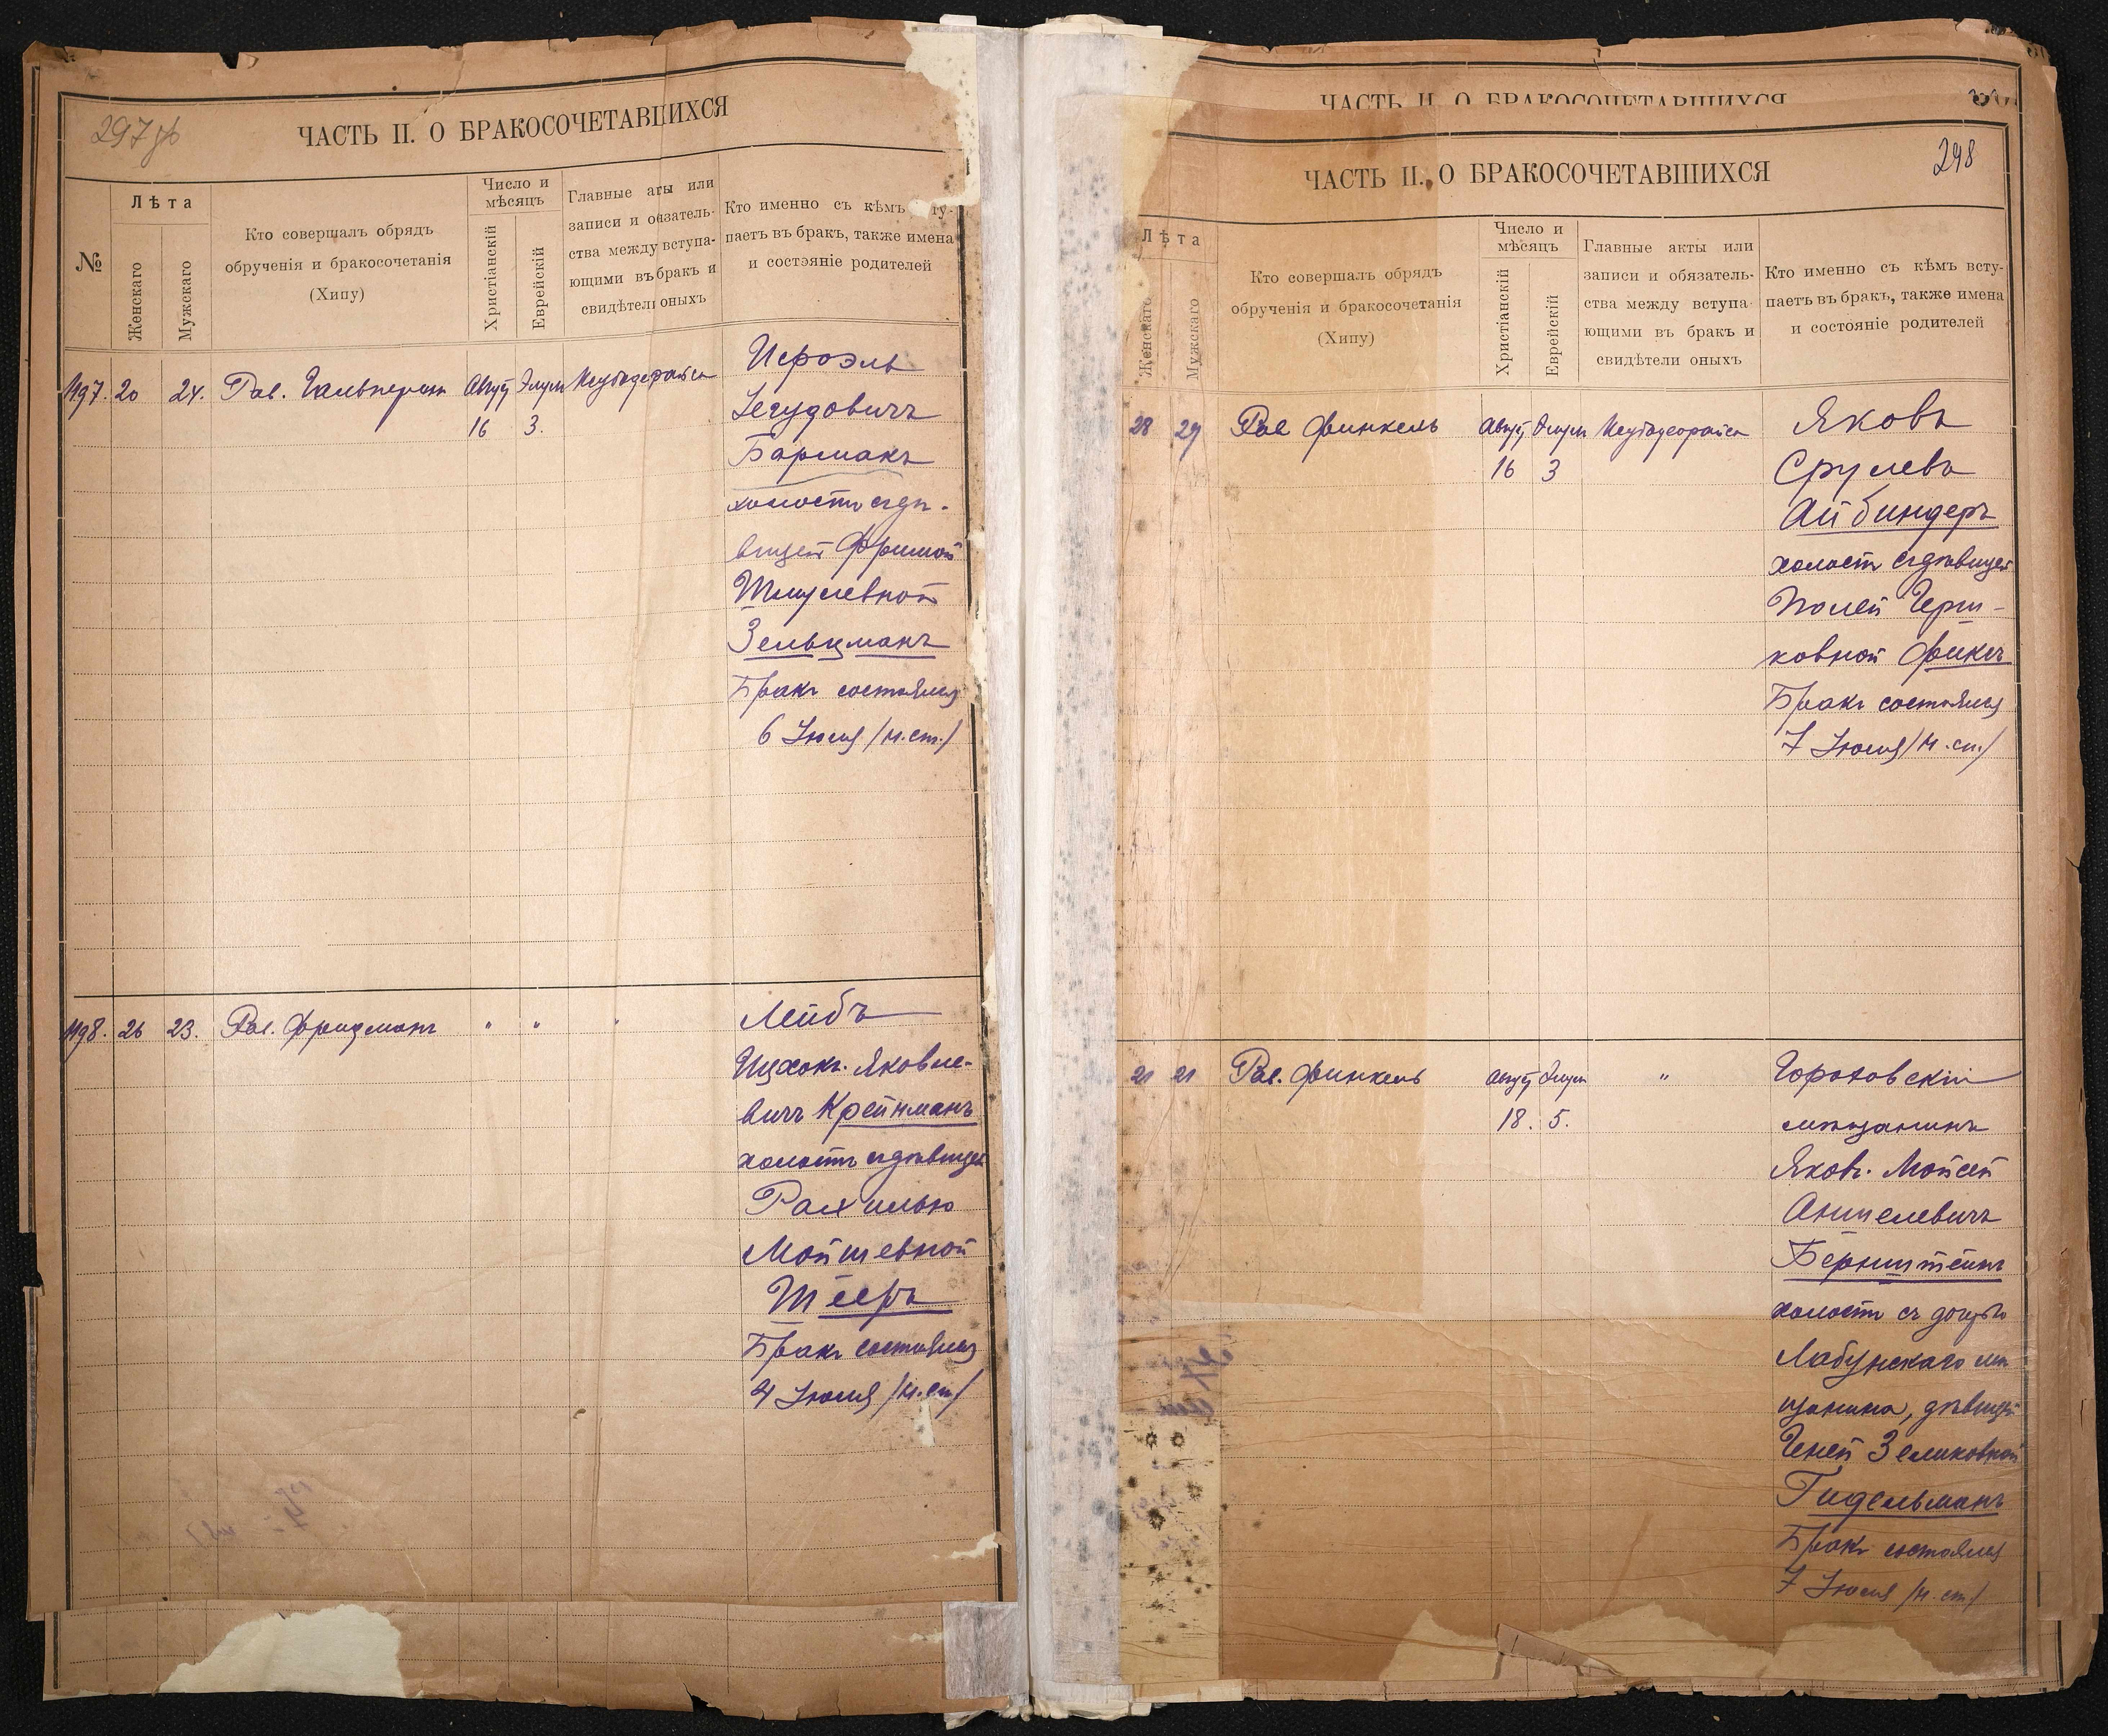 297 об
ЧАСТЬ II. О БРАКОСОЧЕТАВШИХСЯ
№
Лѣта
Женскаго
Мужскаго
Кто совершалъ обрядъ
обрученія и бракосочетанія
(Хипу)
Число и
мѣсяцъ
Христіанскій
Еврейскій
Главные акты или
записи и обязатель-
ства между вступа-
ющими въ бракъ и
свидѣтели оныхъ
Кто именно съ кѣмъ всту-
паетъ въ бракъ, также имена
и состояніе родителей
20 24. Рав. Гальперинъ Август Элулъ
16 3.
Исроэль
Іегудовичъ
Бармакъ
холостъ съ дѣ-
вицей Фримой
Шмулевной
Зельцманъ
Бракъ состоялся
6 Іюля /н.ст./
26 23. Рав. Фридманъ " " "
Лейбъ
Ицхокъ Яковле-
вичъ Крейнманъ
холостъ съ дѣвицей
Рахилью
Мойшевной
Шееръ
Бракъ состоялся
4 Іюля /н.ст/
ЧАСТЬ II. О БРАКОСОЧЕТАВШИХСЯ
298
ЧАСТЬ II. О БРАКОСОЧЕТАВШИХСЯ
Лѣта
Женскаго
Мужскаго
Кто совершалъ обрядъ
обрученія и бракосочетанія
(Хипу)
Число и
мѣсяцъ
Христіанскій
Еврейскій
Главные акты или
записи и обязатель-
ства между вступа-
ющими въ бракъ и
свидѣтели оныхъ
Кто именно съ кѣмъ всту-
паетъ въ бракъ, также имена
и состояніе родителей
28 29 Рав Финкель Август Элулъ
16 3
Яковъ
Срулевъ
Айбиндеръ
холостъ съ дѣвицей
ковной Фиксъ
Бракъ состоялся
7 Іюля /н.ст./
21 21 Рав. Финкель Август Элулъ "
18. 5.
Гороховскій
мѣщанинъ
Яковъ Мойсей
Аншелевичъ
Бернштейнъ
холостъ съ дочерью
Лабунскаго мѣ
щанина, дѣвицей
Геней Зеликовной
Гидельманъ
Бракъ состоялся
7 Іюля /н.ст/